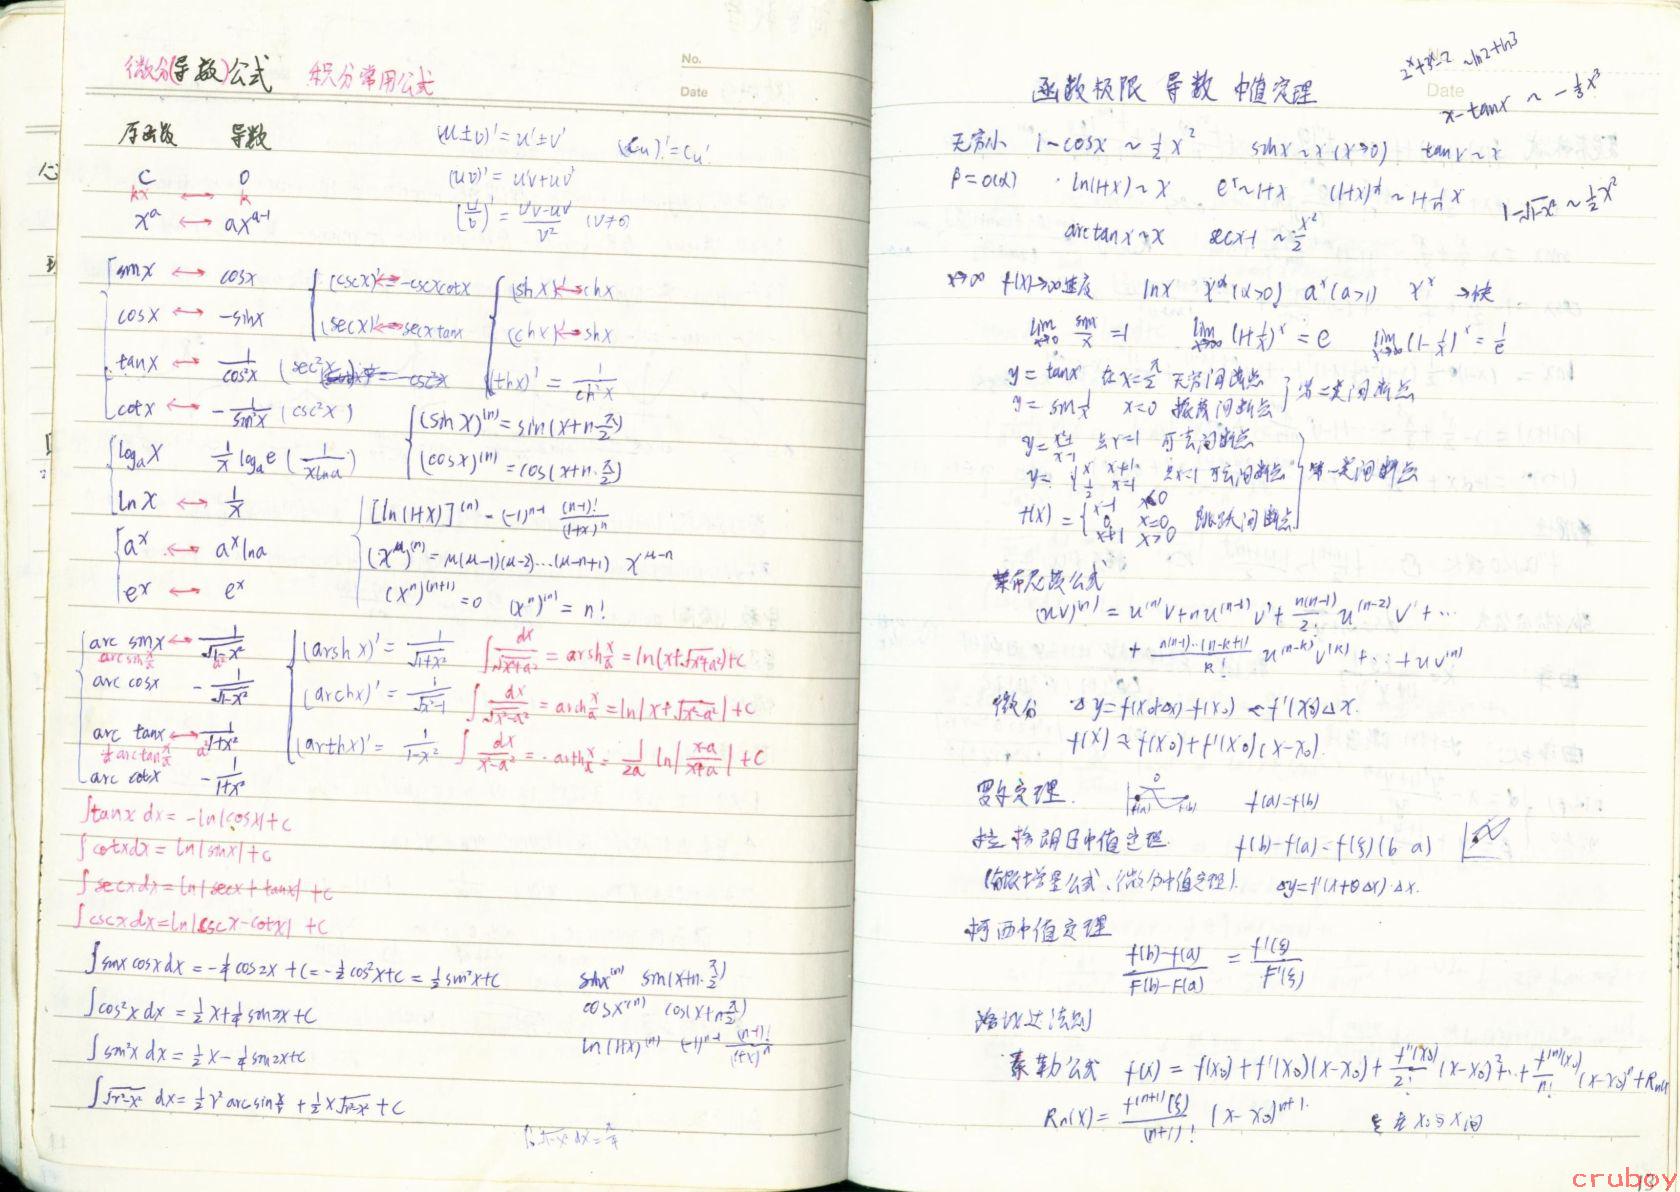 微分(导数)公式 积分常用公式
No.
Date
原函数 导数
C 0
kx ↔ k
x^a ↔ ax^{a-1}
(u±v)'=u'±v' (Cu)'=Cu'
(uv)'=u'v+uv'
(u/v)'=(u'v-uv')/v² (v≠0)
sinx ↔ cosx
cosx ↔ -sinx
tanx ↔ 1/cos²x (sec²x)
cotx ↔ -1/sin²x (csc²x)
(cscx)' ↔ -cscxcotx
(secx)' ↔ secxtanx
(shx)' ↔ chx
(chx)' ↔ shx
(thx)' = 1/ch²x
(sinx)^{(n)}=sin(x+n·π/2)
(cosx)^{(n)}=cos(x+n·π/2)
log_a x 1/x log_a e (1/(xlna))
lnx ↔ 1/x
a^x ↔ a^x lna
e^x ↔ e^x
[ln(1+x)]^{(n)}=(-1)^{n-1} (n-1)!/(1+x)^n
(x^μ)^{(n)}=μ(μ-1)(μ-2)...(μ-n+1) x^{μ-n}
(x^n)^{(n+1)}=0 (x^n)^{(n)}=n!
arc sinx ↔ 1/√(1-x²)
arcsin x/a a²
arc cosx -1/√(1-x²)
arc tanx ↔ 1/(1+x²)
1/a arctan x/a a²
arc cotx -1/(1+x²)
(arshx)'=1/√(1+x²) ∫dx/√(x²+a²)=arsh x/a=ln(x+√(x²+a²))+C
(archx)'=1/√(x²-1) ∫dx/√(x²-a²)=arch x/a=ln|x+√(x²-a²)|+C
(arthx)'=1/(1-x²) ∫dx/(x²-a²)=-arth x/a=1/2a ln|(x-a)/(x+a)|+C
∫tanx dx=-ln|cosx|+C
∫cotxdx=ln|sinx|+C
∫secxdx=ln|secx+tanx|+C
∫cscxdx=ln|cscx-cotx|+C
∫sinxcosxdx=-1/4cos2x+C=-1/2cos²x+C=1/2sin²x+C
∫cos²xdx=1/2x+1/4sin2x+C
∫sin²xdx=1/2x-1/4sin2x+C
∫√(r²-x²) dx=1/2r²arcsin x/r+1/2x√(r²-x²)+C
sinx^{(n)} sin(x+n·π/2)
cosx^{(n)} cos(x+nπ/2)
ln(1+x)^{(n)} (-1)^{n-1} (n-1)!/(1+x)^n
函数极限 导数 中值定理
Date
2^x+3^x-2 ~ln2+ln3
x-tanx ~ -1/3x³
无穷小 1-cosx ~ 1/2x² sinx~x(x→0) tanx~x
β=o(α) ·ln(1+x)~x e^x~1+x (1+x)^{1/n}~1+1/n x
1-√(1-x²)~1/2x²
arctanx~x secx-1~x²/2
x→∞ f(x)→∞速度 lnx x^α(α>0) a^x(a>1) x^x →快
lim_{x→0} sinx/x=1 lim_{x→∞}(1+1/x)^x=e lim_{x→∞}(1-1/x)^x=1/e
y=tanx 在x=π/2 无穷间断点
y=sin1/x x=0 振荡间断点 } 第二类间断点
y=(x²-1)/(x-1) 点x=1 可去间断点
y={x x≠1, 1/2 x=1 点x=1 可去间断点 } 第一类间断点
f(x)={x-1 x<0, 0 x=0, x+1 x>0 跳跃间断点
莱布尼茨公式
(uv)^{(n)}=u^{(n)}v+nu^{(n-1)}v'+n(n-1)/2! u^{(n-2)}v''+···
+ n(n-1)...(n-k+1)/k! u^{(n-k)}v^{(k)}+...+uv^{(n)}
微分 Δy=f(x₀+Δx)-f(x₀)≈f'(x₀)Δx.
f(x)≈f(x₀)+f'(x₀)(x-x₀).
罗尔定理. f(a) f(b) f(a)=f(b)
拉格朗日中值定理. f(b)-f(a)=f'(ξ)(b-a)
(有限增量公式、微分中值定理). Δy=f'(x+θΔx)·Δx.
柯西中值定理
(f(b)-f(a))/(F(b)-F(a))=f'(ξ)/F'(ξ)
洛必达法则
泰勒公式 f(x)=f(x₀)+f'(x₀)(x-x₀)+f''(x₀)/2!(x-x₀)²+...+f^{(n)}(x₀)/n!(x-x₀)^n+Rn(x)
Rn(x)=f^{(n+1)}(ξ)/(n+1)! (x-x₀)^{n+1}. ξ在x₀与x间
cruboy